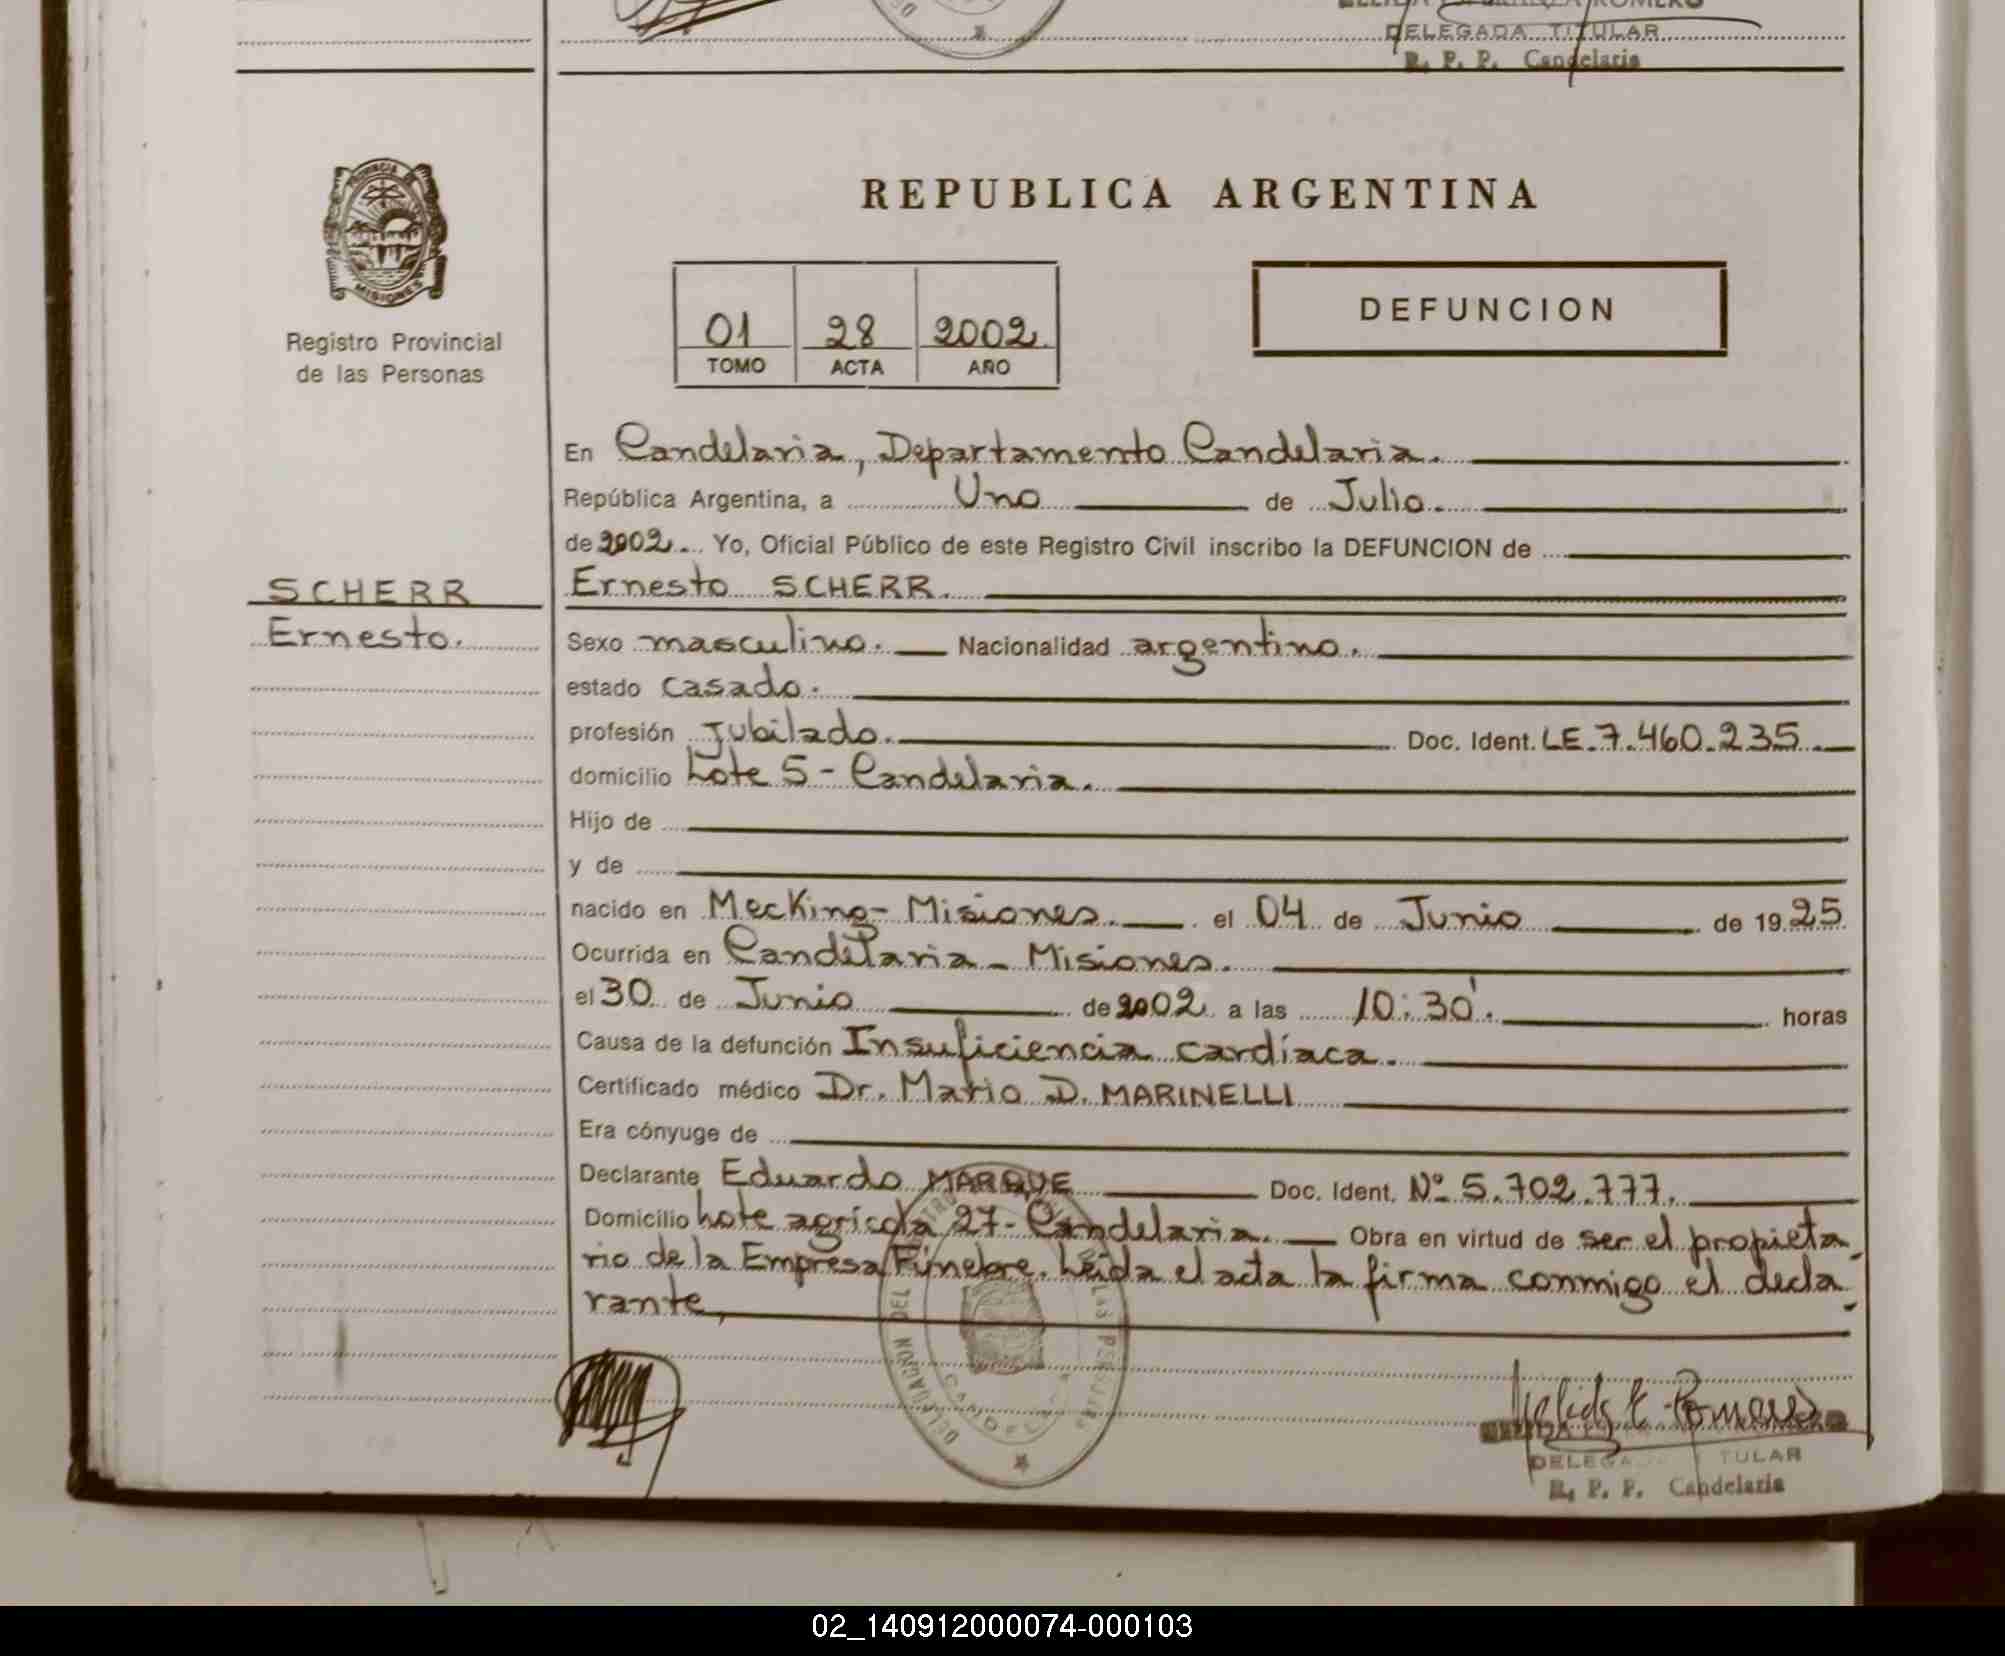 DELEGADA TITULAR
R. P. P. Candelaria
PROVINCIA DE
MISIONES
Registro Provincial
de las Personas
REPUBLICA ARGENTINA
01 28 2002
TOMO ACTA AÑO
DEFUNCION
En Candelaria, Departamento Candelaria.
República Argentina, a Uno de Julio.
de 2002. Yo, Oficial Público de este Registro Civil inscribo la DEFUNCION de
SCHERR
Ernesto.
Ernesto SCHERR.
Sexo masculino. Nacionalidad argentino.
estado casado.
profesión Jubilado. Doc. Ident. LE.7.460.235
domicilio Lote 5 - Candelaria.
Hijo de
y de
nacido en Mecking - Misiones. el 04 de Junio de 1925
Ocurrida en Candelaria - Misiones.
el 30 de Junio de 2002 a las 10:30'. horas
Causa de la defunción Insuficiencia cardíaca.
Certificado médico Dr. Mario D. MARINELLI
Era cónyuge de
Declarante Eduardo MARQUE Doc. Ident. Nº 5.702.777.
Domicilio Lote agrícola 27- Candelaria. Obra en virtud de ser el propieta-
rio de la Empresa Fúnebre. Leída el acta la firma conmigo el decla-
rante,
DELEGACION DEL
DE LAS PERSONAS
TULAR
R. P. P. Candelaria
02_140912000074-000103